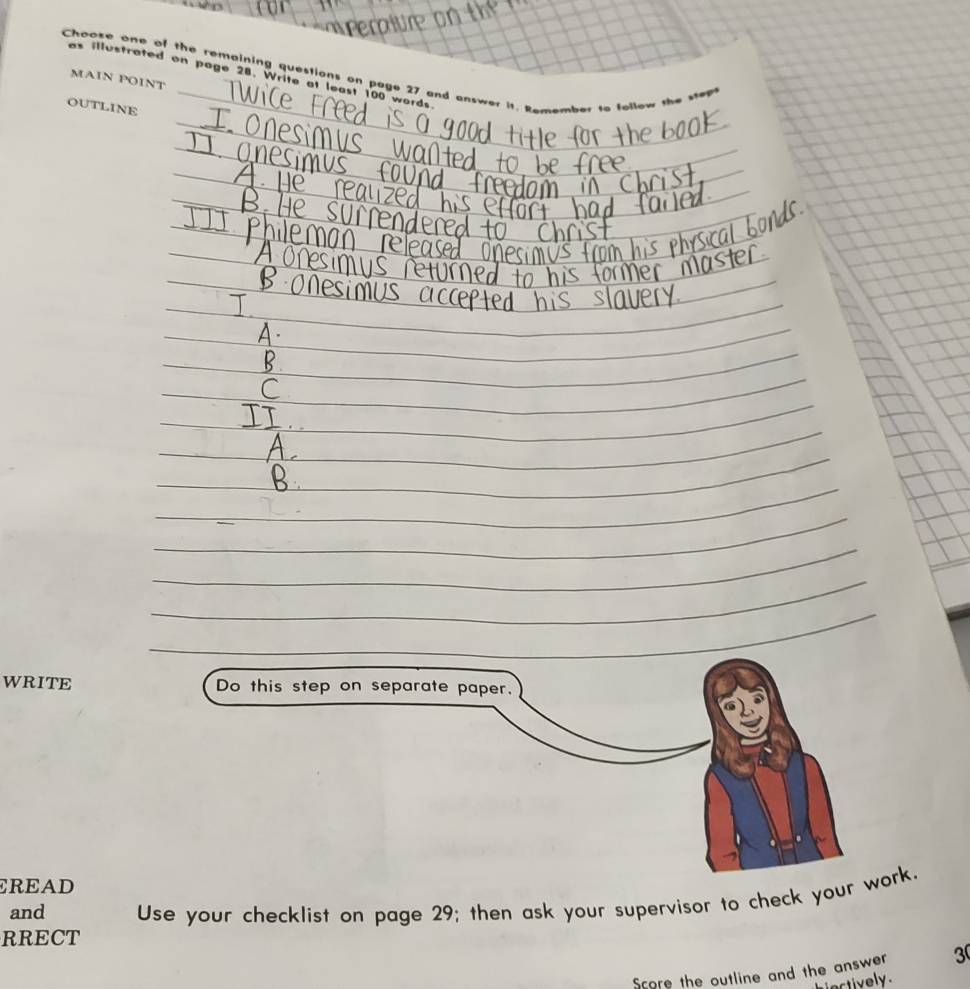 temperature on the
Choose one of the remaining questions on page 27 and answer it. Remember to follow the steps
as illustrated on page 28. Write at least 100 words.
MAIN POINT Twice Freed is a good title for the book
OUTLINE I. Onesimus wanted to be free.
II. Onesimus found freedom in Christ,
A. He realized his effort had failed.
B. He surrendered to Christ
III. Philemon released Onesimus from his physical bonds.
A. Onesimus returned to his former master.
B. Onesimus accepted his slavery.
I.
A.
B.
C
II..
A.
B.
WRITE Do this step on separate paper.
EREAD
and Use your checklist on page 29; then ask your supervisor to check your work.
RRECT
Score the outline and the answer